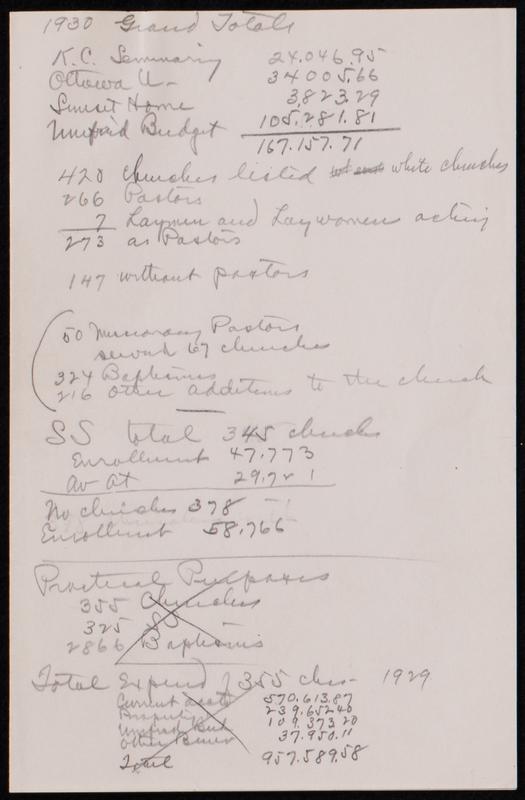 1930 Grand Totals
K.C. Seminary 24,046.95
Ottowa U- 34005.66
Sunset Home 3,823.29
Unified Budget 105,281.81
167,157.71
420 churches listed white churches
266 Pastors
7 Laymen and Laywomen acting
273 as Pastors
147 without pastors
50 Missionary Pastors
served 67 churches
324 Baptisms
216 other additions to the church
SS total 345 churches
Enrollment 47,773
Av At 29,721
No churches 378
Enrollment 58,766
Practical Purposes
355 Churches
325 SS
2866 Baptisms
Total Expend of 355 chs- 1929
Current 570,613.87
Property 239,652.40
Unified Bud 109,373.20
Other Benev 37,950.11
Total 957,589.58